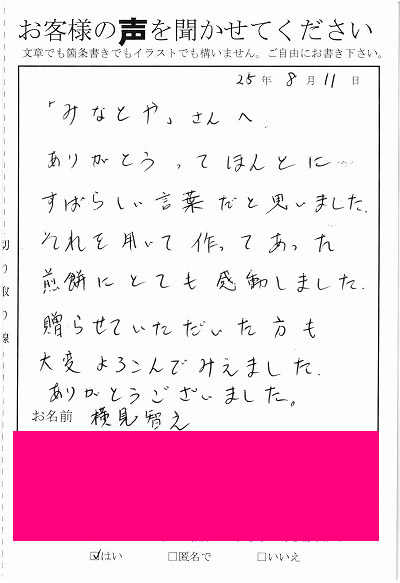 お客様の声を聞かせてください
文章でも箇条書きでもイラストでも構いません。ご自由にお書き下さい。
25年 8月 11日
「みなとや」さんへ
ありがとう ってほんとに
すばらしい言葉だと思いました.
それを用いて作ってあった
煎餅にとても感動しました.
贈らせていただいた方も
大変よろこんでみえました.
ありがとうございました。
お名前 検見智え
切り取り線
☑はい □匿名で □いいえ